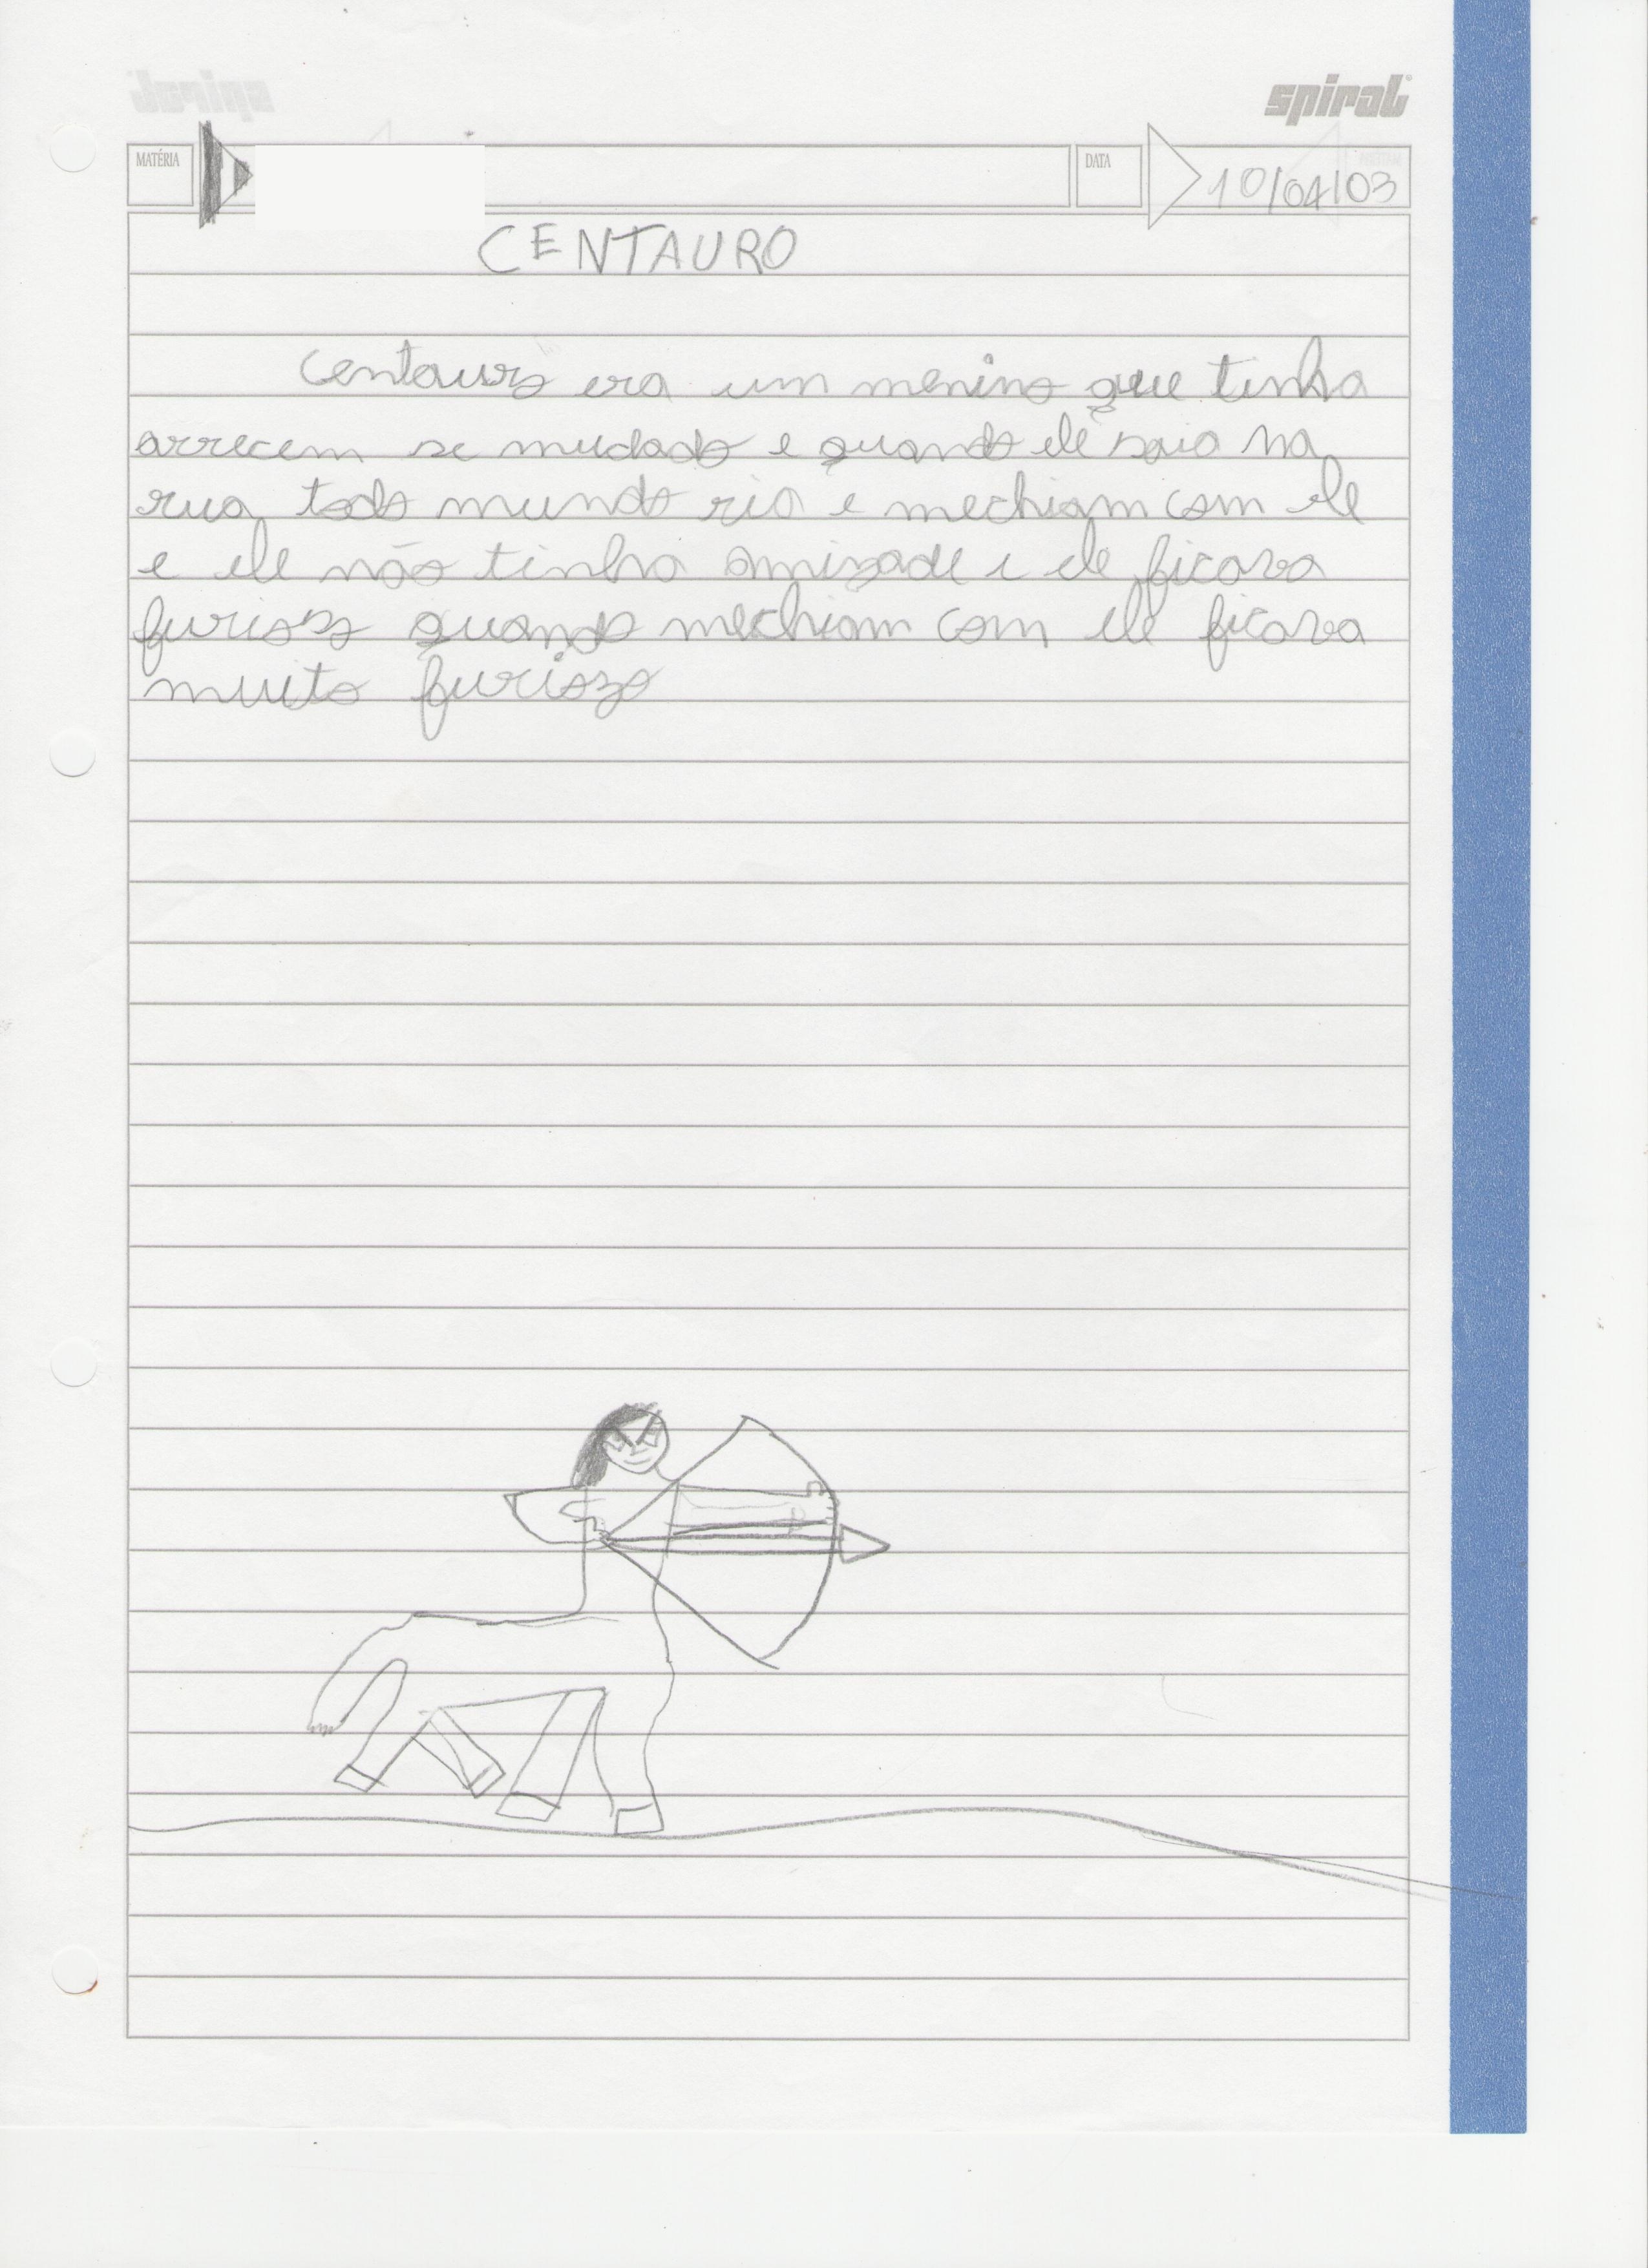 spiral
MATÉRIA DATA 10/04/03
CENTAURO
Centauro era um menino que tinha
arrecem se mudado e quando ele saia na
rua todo mundo ria e mechiam com ele
e ele não tinha amizade e ele ficava
furioso quando mechiam com ele ficava
muito furiozo